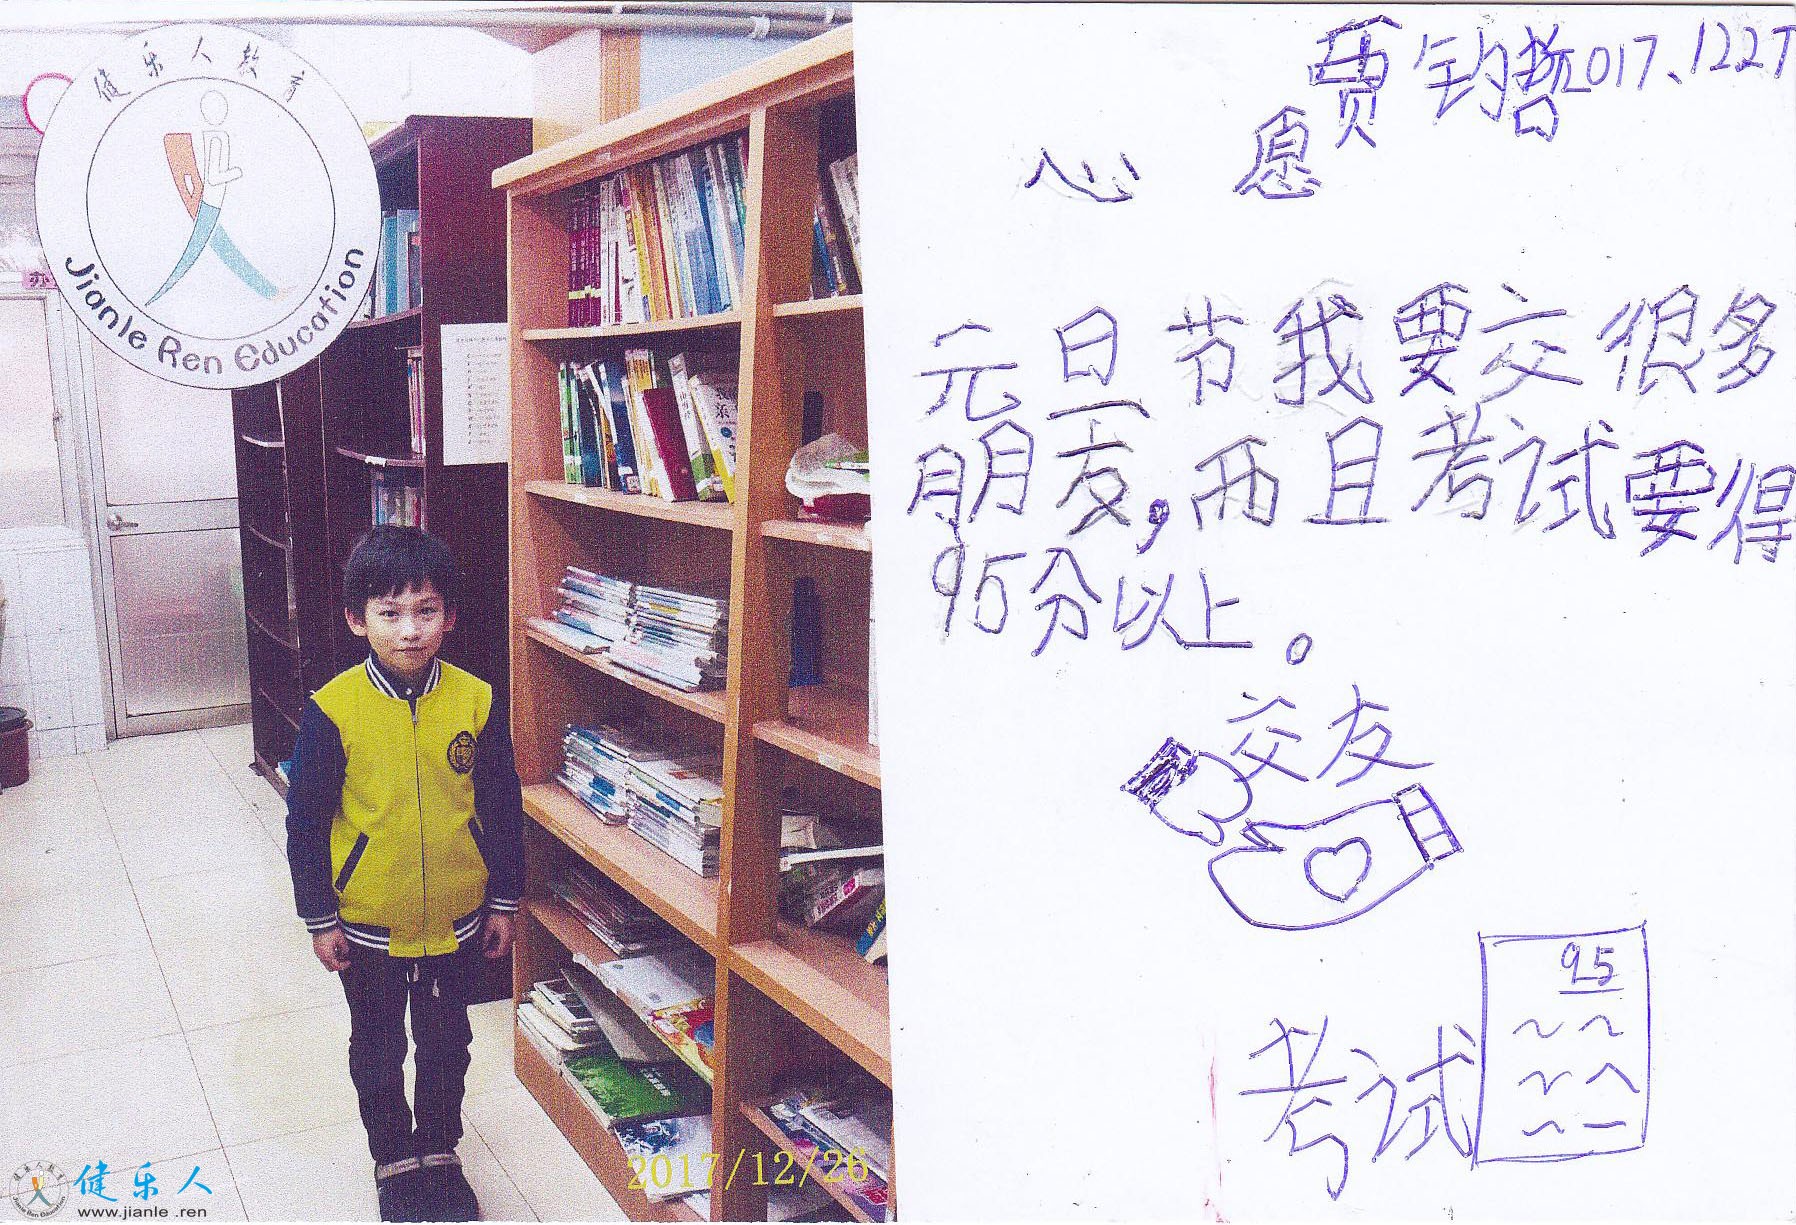 健乐人教育
Jianle Ren Education
贾钧哲2017.1227
心愿
元旦节我要交很多
朋友,而且考试要得
95分以上。
交友
95
考试
2017/12/26
健乐人
www.jianle.ren